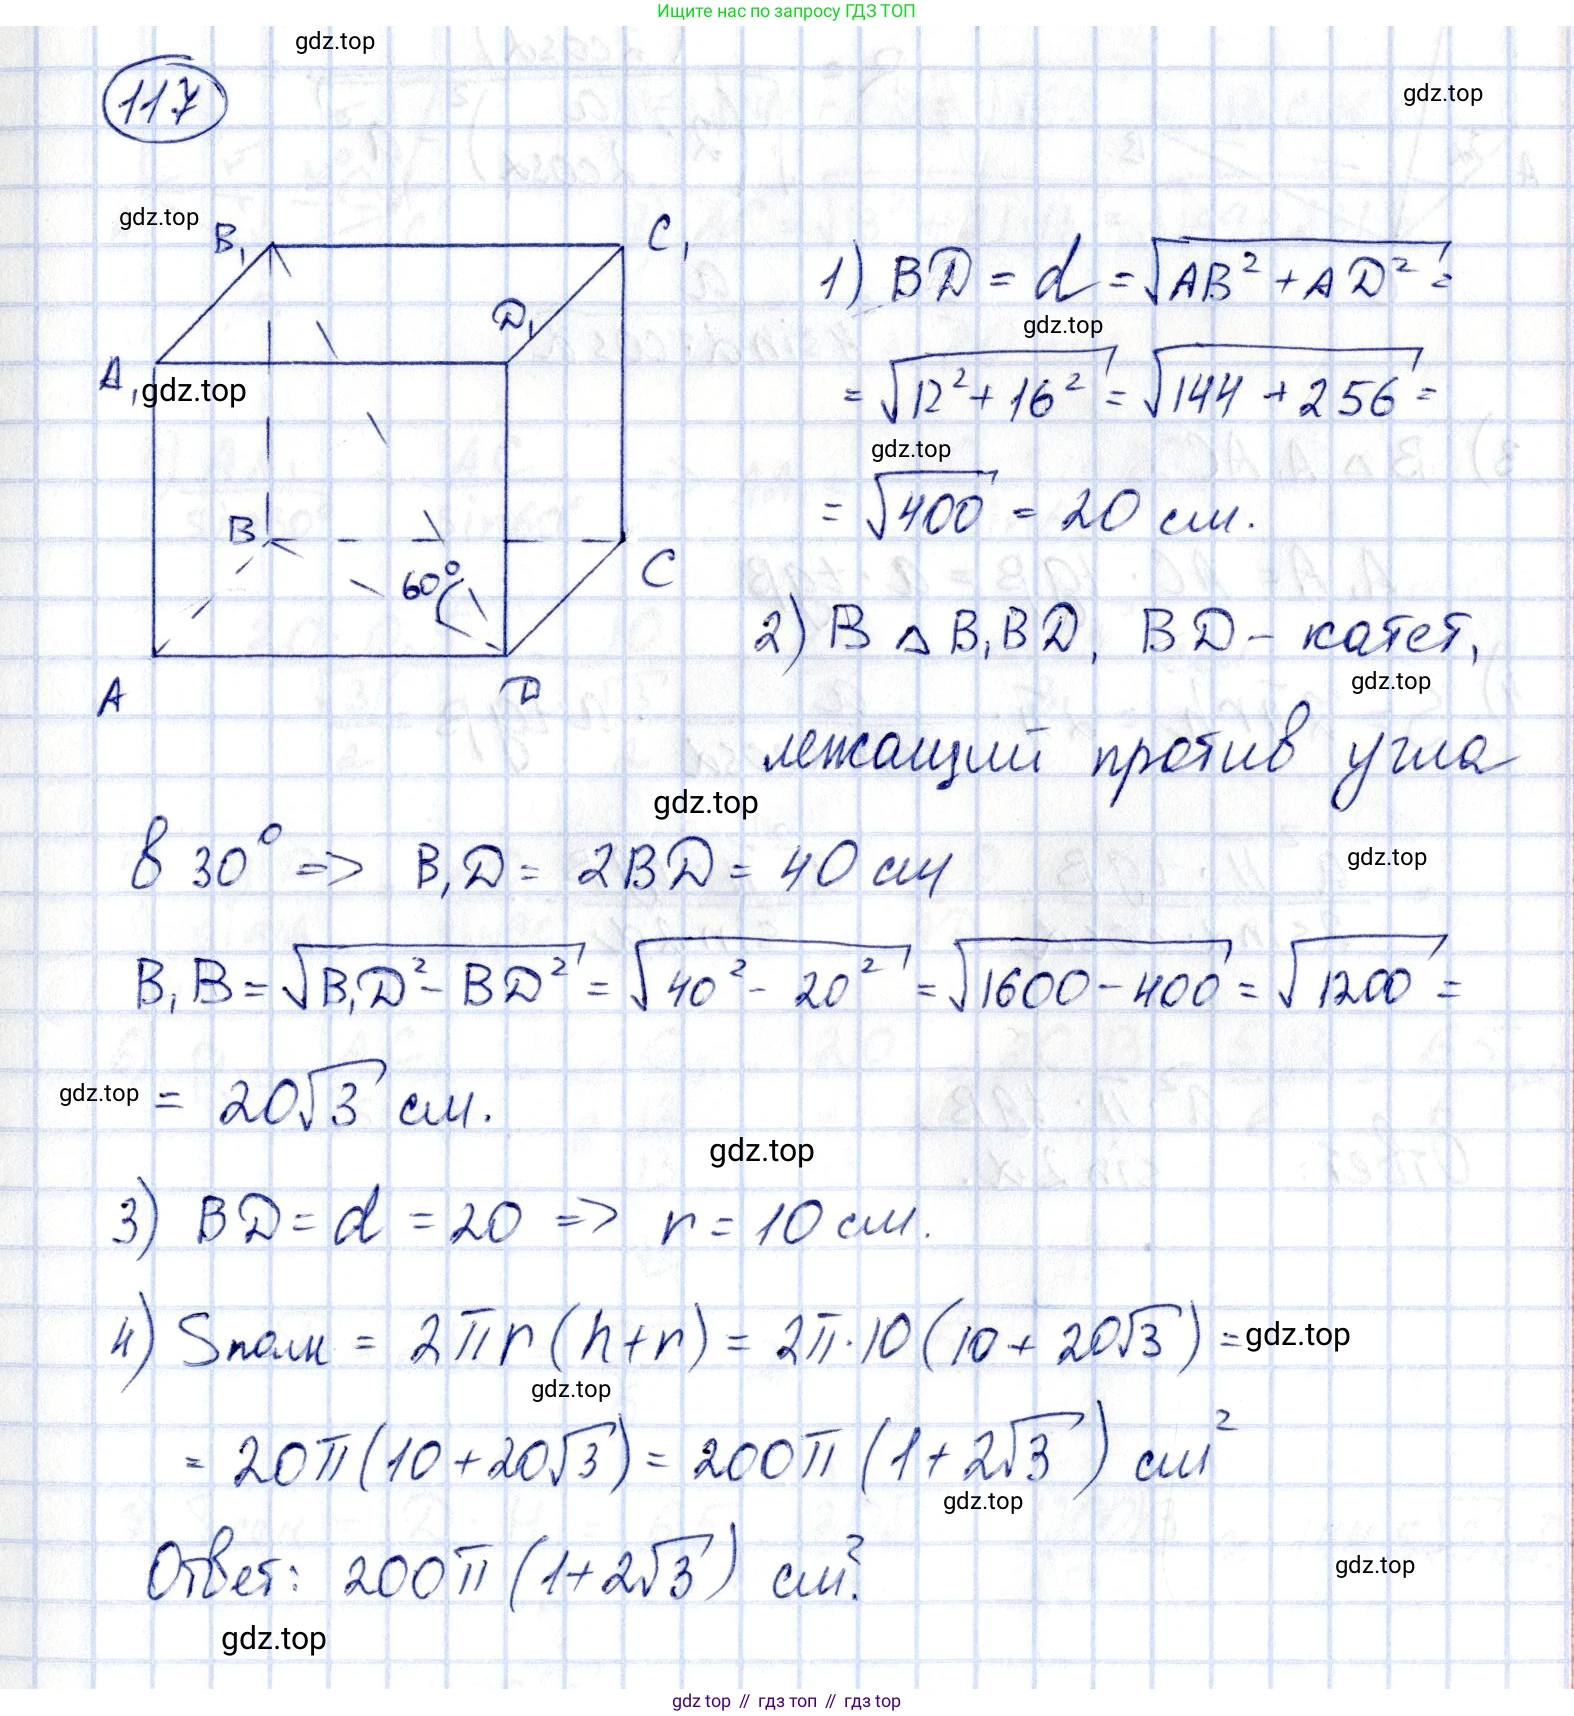 Ищите нас по запросу ГДЗ ТОП
gdz.top
117
gdz.top
gdz.top
B₁
C₁
D₁
A₁
gdz.top
B
60°
C
A
D
1) BD = d = √(AB² + AD²) =
gdz.top
= √(12² + 16²) = √(144 + 256) =
gdz.top
= √400 = 20 см.
2) В △ B₁BD, BD – катет,
gdz.top
лежащий против угла
gdz.top
в 30° => B₁D = 2BD = 40 см
gdz.top
B₁B = √(B₁D² - BD²) = √(40² - 20²) = √(1600 - 400) = √1200 =
gdz.top
= 20√3 см.
gdz.top
3) BD = d = 20 => r = 10 см.
4) Sполн = 2πr (h+r) = 2π·10 (10 + 20√3) =
gdz.top
gdz.top
= 20π (10 + 20√3) = 200π (1 + 2√3) см²
gdz.top
Ответ: 200π (1+2√3) см².
gdz.top
gdz.top
gdz top // гдз топ // гдз top